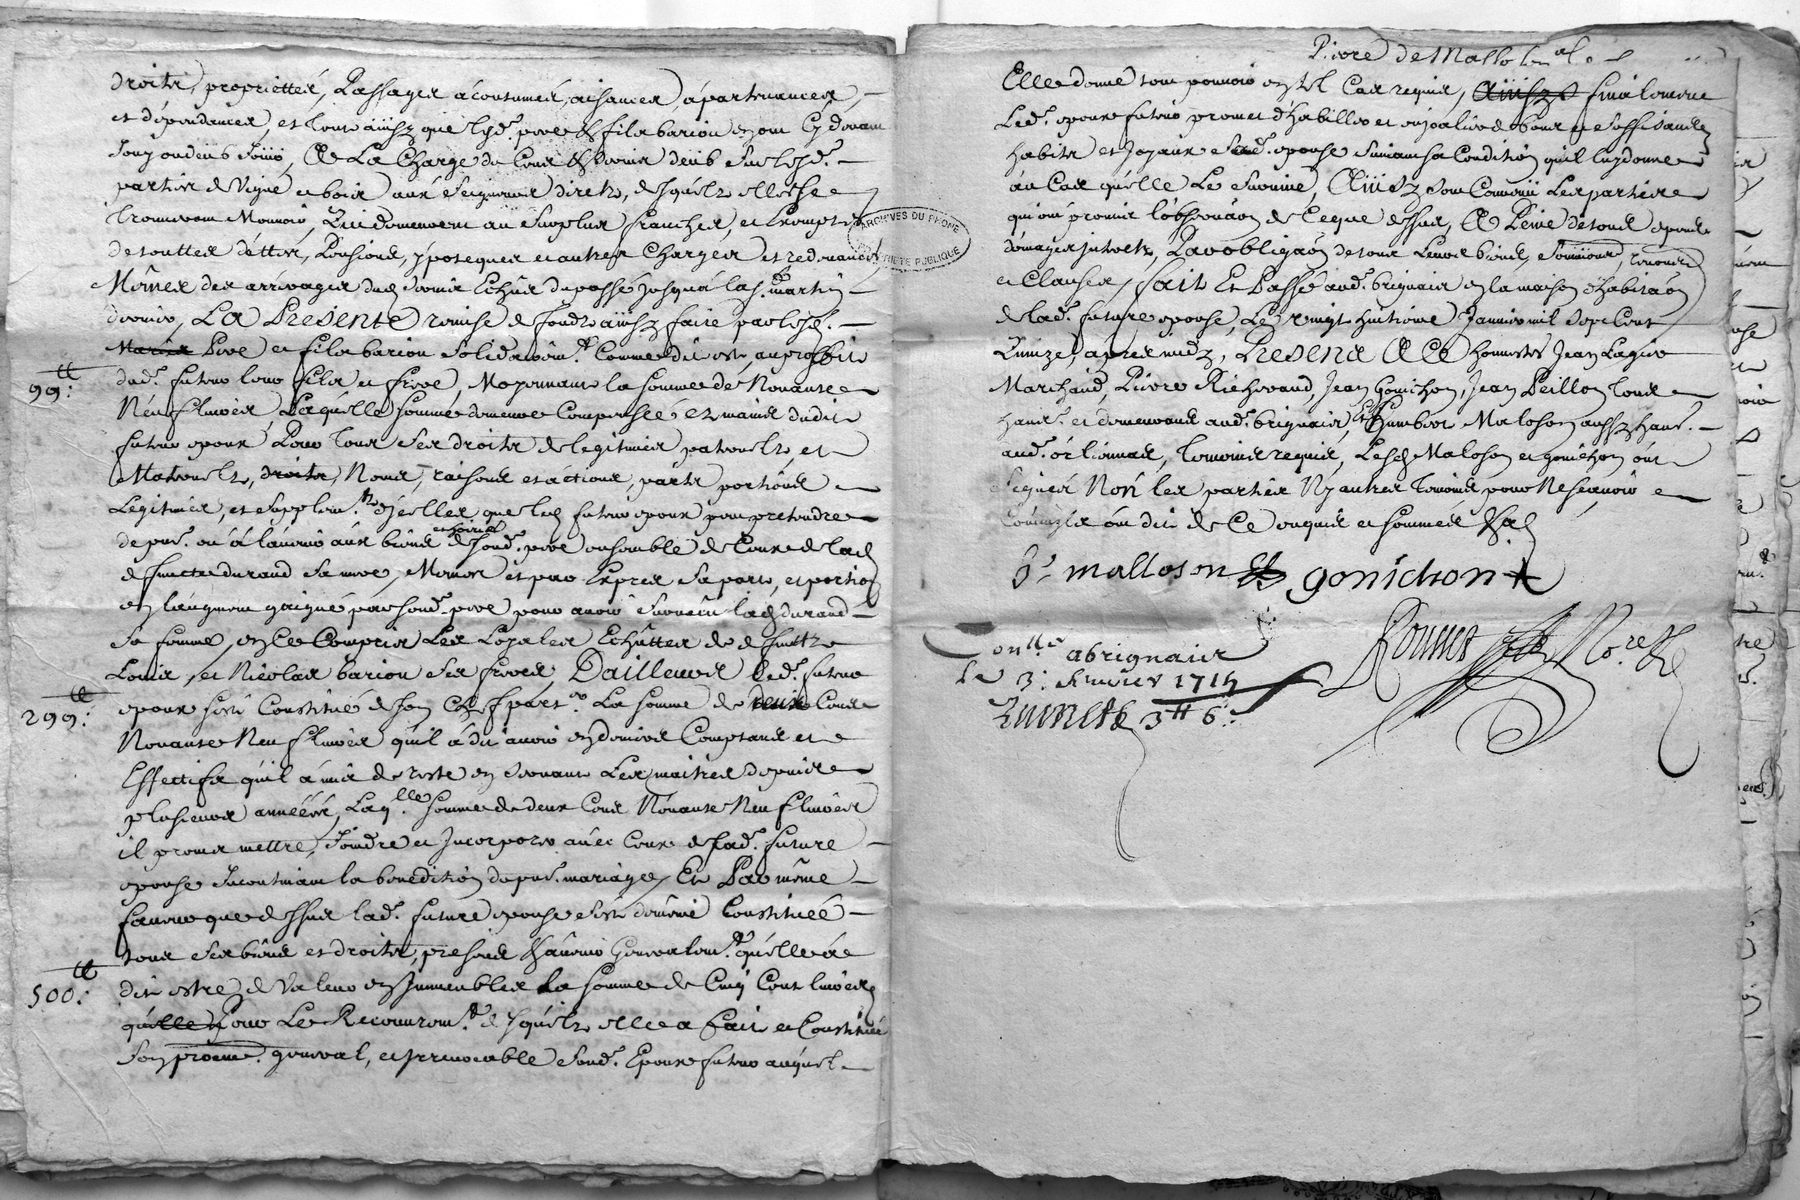 droits, proprietter, Passages acoutumés, aisances apartenances,
et dépendances, et tout ainsy que lesd. pere & fils barion en ont cy devant
Jouy ou deub Jouir, A La Charge du Cens & servis deub sur lesd.
parties de Vigne et bois aux Seigneurs directs, desquels elles se
trouveront Mouvoir, Qui demeurent au surplus franches, et Exemptes
de touttes dettes, Pensions, ypoteques et autres Charges et redevances,
Mêmes des arrérages dud. servis Echus du passé jusqu'a la st. martin
dernier, La Presente remise de fonds ainsy faite par lesd.
Pere et fils barion solidairemt. Comme dit est, au proffit
99: dud. futur leur fils et frere, Moyennant la somme de Nonante
Neuf livres, Laquelle somme demeure Compensée es mains dudit
futur epoux Pour tous ses droits de legitimes paternels, et
Maternels, droits, Noms, raisons et actions, parts portions
Legitimes, et supplemt. d'icelles que led. futur epoux peut pretendre
de pnt. ou à l'avenir aux biens et hoirie de sond. pere ensemble de Ceux de lad.
deffuncte durand sa mere, Memes et par Exprés sa part, et portion
en l'augment gaigné par sond. pere pour avoir survécu lad. durand
sa femme, en ce Compris Les Loyales Echuttes de deffuncts
Louis, et Nicolas barion ses freres, D'ailleurs Led. futur
299: epoux s'est Constitué de son Chef part.er La somme de deux Cents
Nonante Neuf livres qu'il a dit avoir en deniers Comptants et
Effectifs qu'il a mis de reste en servant Les maitres depuis
plusieurs années, Laqlle. somme de deux Cent Nonante Neuf livres
il promet mettre, Joindre et Incorporer avec Ceux de lad. future
epouse Incontinant la benediction du pnt. mariage, Et Par même
faveur que dessus lad. future epouse s'est de même Constituée
tous ses biens et droits, presents & avenir Generalemt. qu'elle a
500: dit estre de Valeur en Immeubles La somme de Cinq Cent livres
qu'elle Pour Le Recouvremt. desquels elle a fait et Constitué
son procur. general, et irrevocable sond. Epoux futur auquel
Pierre de Mallo
Elle donne tout pouvoir en tel Cas requis, Ainsy finalement
Led. epoux futur promet d'habiller et enjoaliver de bons et suffisants
habits et Joyaux sad. epouse suivant sa Condition qu'il luy donne
au Cas qu'elle Le survive, Ainsy sont Convenu Les parties
qui ont promis l'observaon de Ce que dessus, A Peine de tous depens
domages interets, Par obligaon de tous Leurs biens, soumissions, renonciaons
et Clauses, fait Et Passé aud. brignais en la maison d'habitaon
de lad. future epouse, Le vingt huitieme Janvier mil Sept Cent
Quinze, apres midy, Presents A Ce honnestes Jean Lagier
Marchand, Pierre Richerand, Jean Gonichon, Jean Peillon tous
hants. et demeurants aud. brignais, Et Humbert Maloson aussy hant.
aud. orlienas, temoins requis, Lesd. Maloson et gonichon ont
signés Non les parties Ny autres temoins pour Ne sçavoir
ecrire ainsy qu'ils ont dit de Ce enquis et sommés &a.
h. malloson gonichon
Ronnet No.re R.
Con.lle a brignais
Le 3. fevrier 1715
Quinet R 3# 6s
ARCHIVES DU RHONE
PROPRIETE PUBLIQUE